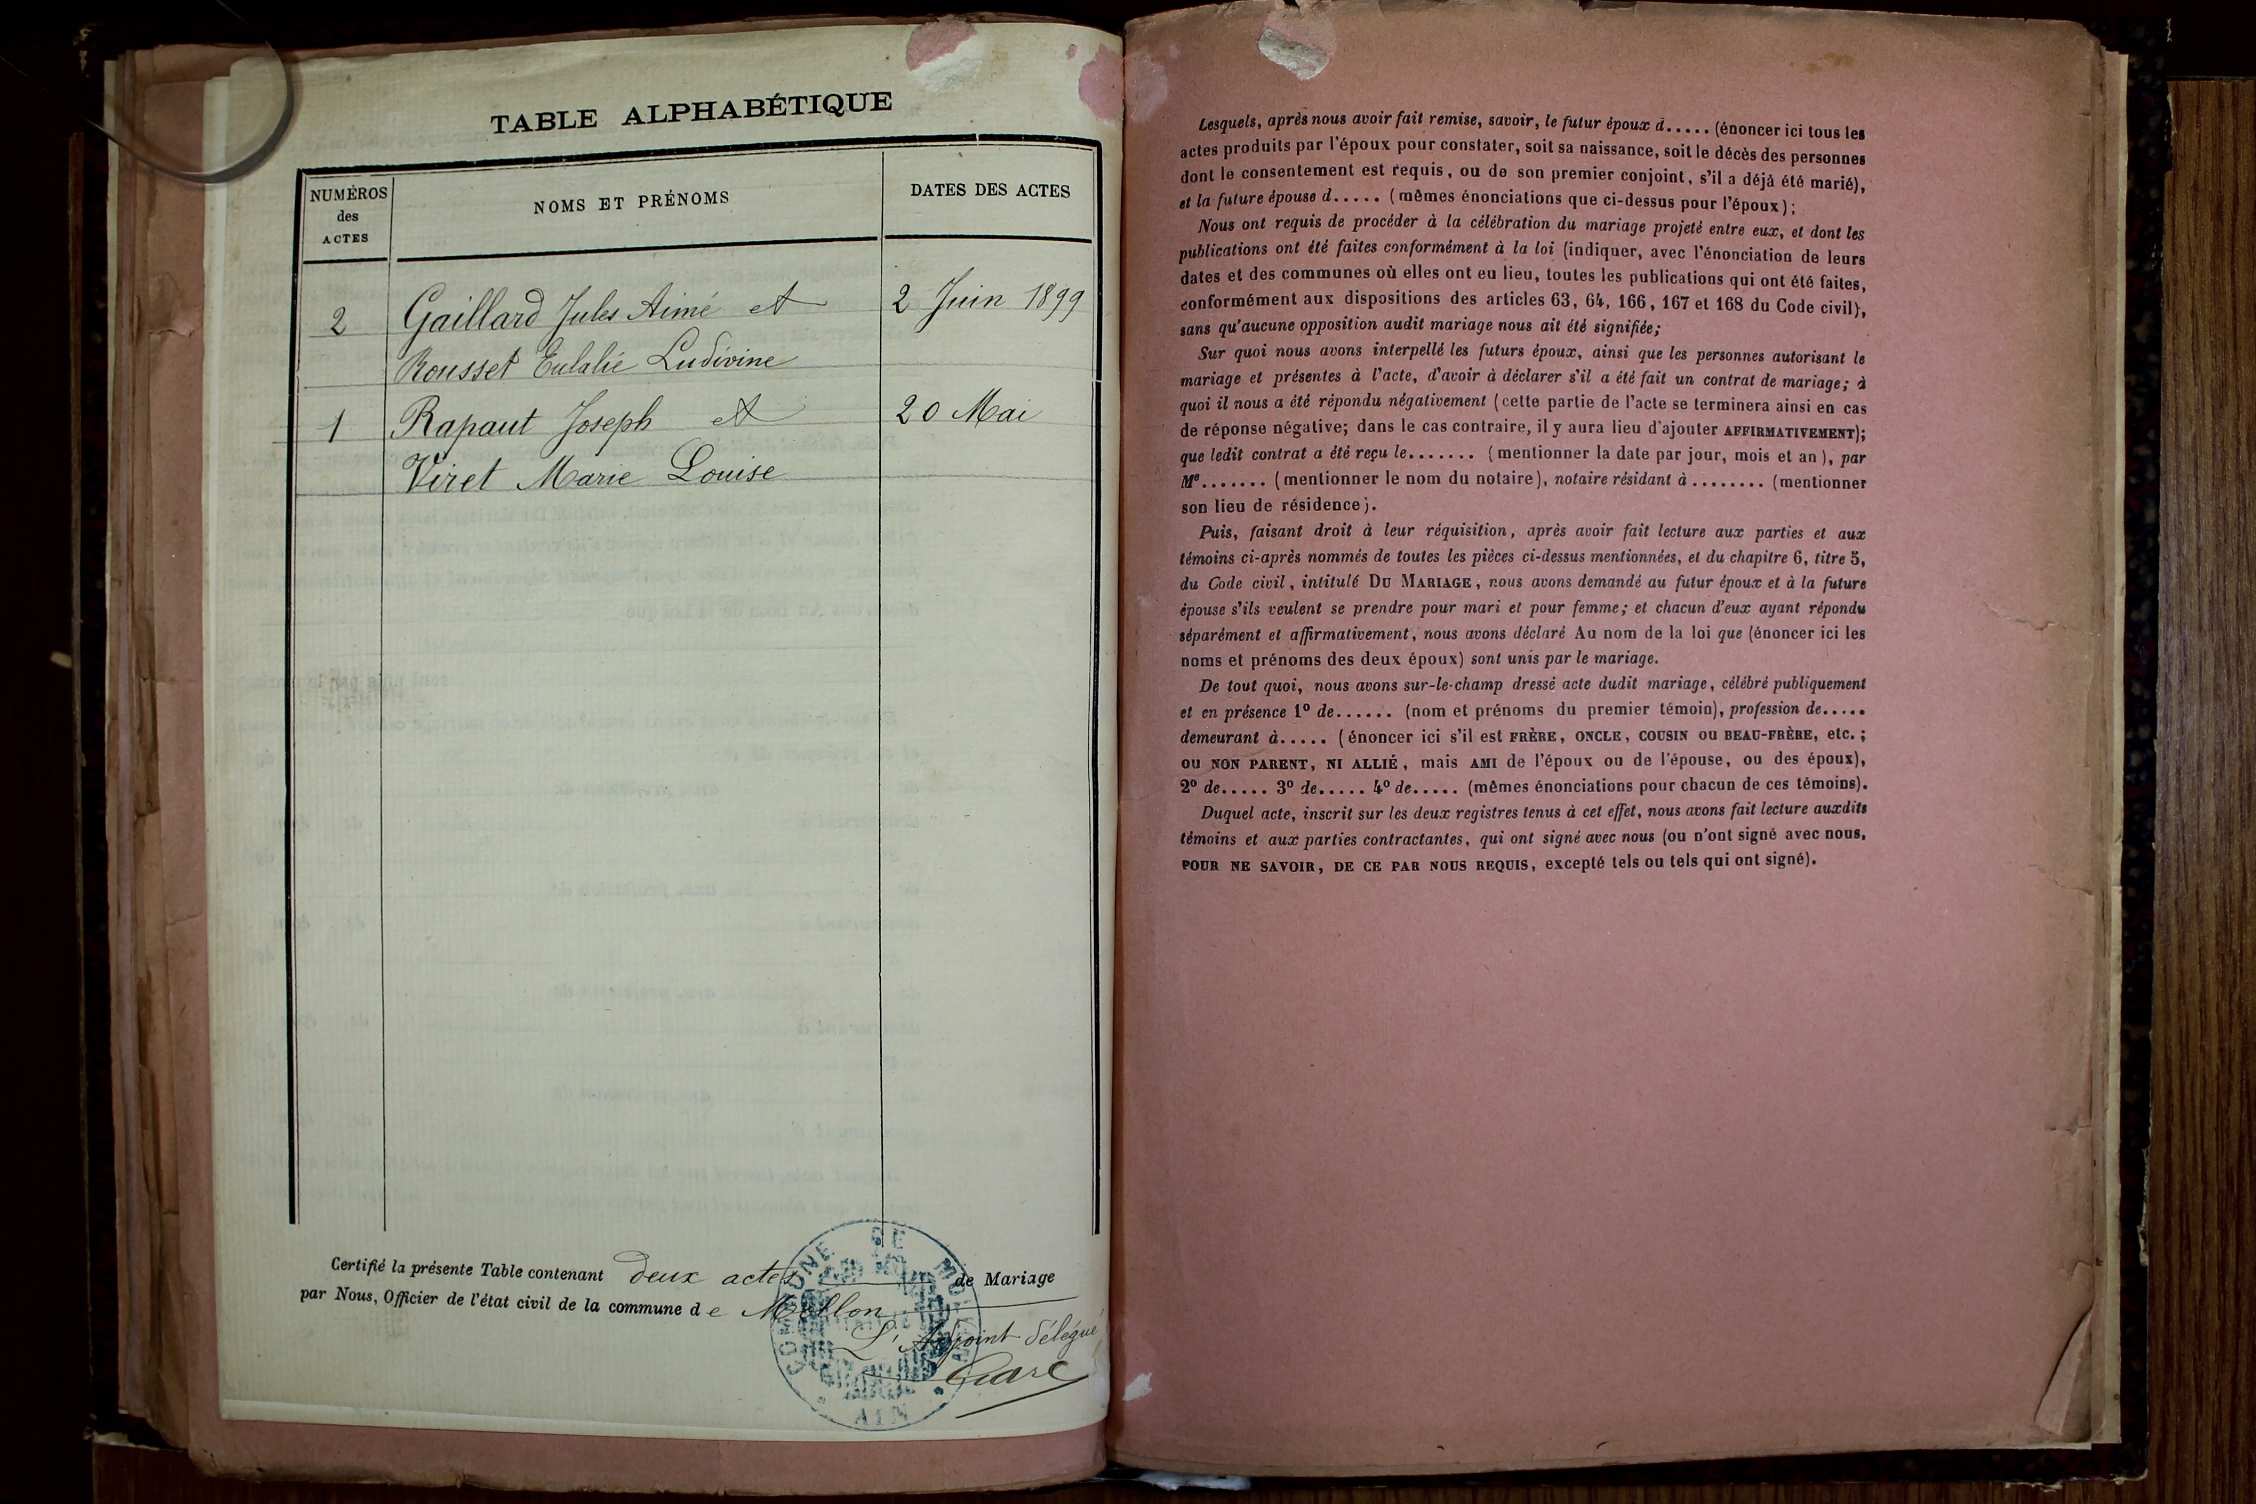 TABLE ALPHABÉTIQUE
NUMÉROS
des
ACTES
NOMS ET PRÉNOMS
DATES DES ACTES
2 Gaillard Jules Aimé et 2 Juin 1899
Rousset Eulalie Ludivine
1 Rapaut Joseph et 20 Mai
Viret Marie Louise
Certifié la présente Table contenant deux actes de Mariage
par Nous, Officier de l'état civil de la commune de Mollon
L'Adjoint délégué
COMMUNE DE MOLLON
AIN
Lesquels, après nous avoir fait remise, savoir, le futur époux d..... (énoncer ici tous les
actes produits par l'époux pour constater, soit sa naissance, soit le décès des personnes
dont le consentement est requis, ou de son premier conjoint, s'il a déjà été marié),
et la future épouse d..... (mêmes énonciations que ci-dessus pour l'époux);
Nous ont requis de procéder à la célébration du mariage projeté entre eux, et dont les
publications ont été faites conformément à la loi (indiquer, avec l'énonciation de leurs
dates et des communes où elles ont eu lieu, toutes les publications qui ont été faites,
conformément aux dispositions des articles 63, 64, 166, 167 et 168 du Code civil),
sans qu'aucune opposition audit mariage nous ait été signifiée;
Sur quoi nous avons interpellé les futurs époux, ainsi que les personnes autorisant le
mariage et présentes à l'acte, d'avoir à déclarer s'il a été fait un contrat de mariage; à
quoi il nous a été répondu négativement (cette partie de l'acte se terminera ainsi en cas
de réponse négative; dans le cas contraire, il y aura lieu d'ajouter AFFIRMATIVEMENT);
que ledit contrat a été reçu le....... (mentionner la date par jour, mois et an), par
Me....... (mentionner le nom du notaire), notaire résidant à ........ (mentionner
son lieu de résidence).
Puis, faisant droit à leur réquisition, après avoir fait lecture aux parties et aux
témoins ci-après nommés de toutes les pièces ci-dessus mentionnées, et du chapitre 6, titre 5,
du Code civil, intitulé DU MARIAGE, nous avons demandé au futur époux et à la future
épouse s'ils veulent se prendre pour mari et pour femme; et chacun d'eux ayant répondu
séparément et affirmativement, nous avons déclaré Au nom de la loi que (énoncer ici les
noms et prénoms des deux époux) sont unis par le mariage.
De tout quoi, nous avons sur-le-champ dressé acte dudit mariage, célébré publiquement
et en présence 1º de...... (nom et prénoms du premier témoin), profession de.....
demeurant à..... (énoncer ici s'il est FRÈRE, ONCLE, COUSIN ou BEAU-FRÈRE, etc.;
OU NON PARENT, NI ALLIÉ, mais AMI de l'époux ou de l'épouse, ou des époux),
2º de..... 3º de..... 4º de..... (mêmes énonciations pour chacun de ces témoins).
Duquel acte, inscrit sur les deux registres tenus à cet effet, nous avons fait lecture auxdits
témoins et aux parties contractantes, qui ont signé avec nous (ou n'ont signé avec nous,
POUR NE SAVOIR, DE CE PAR NOUS REQUIS, excepté tels ou tels qui ont signé).